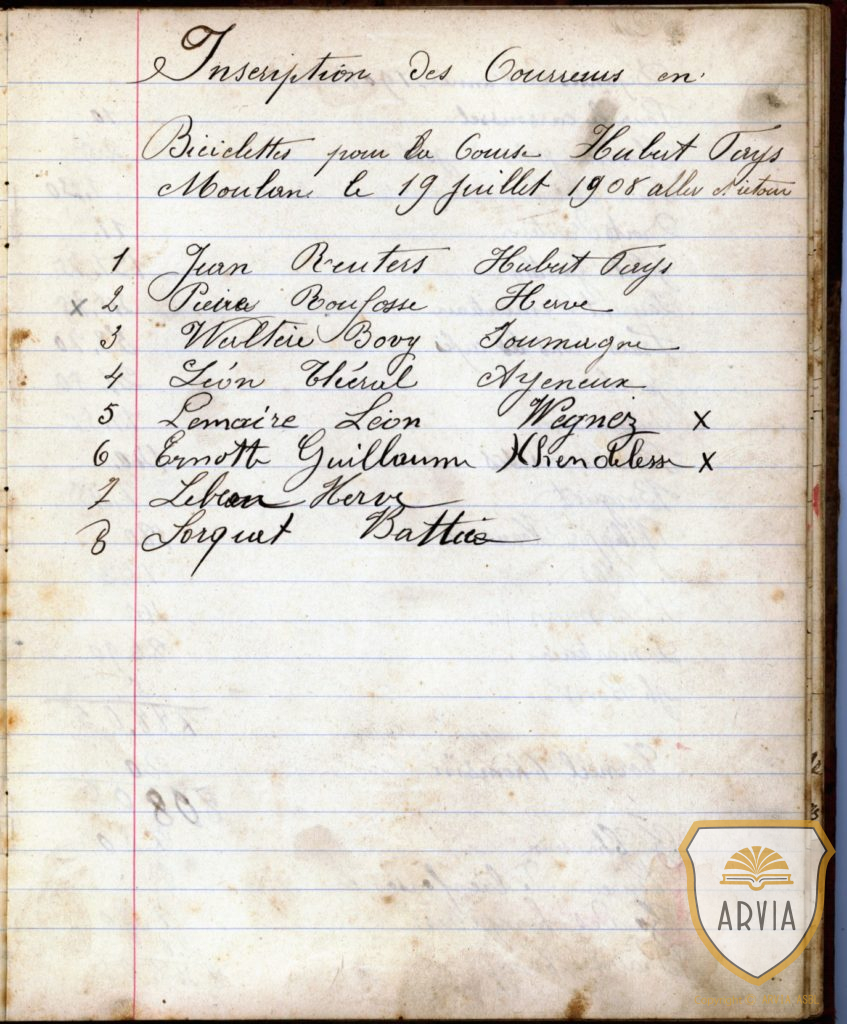 Inscription des Coureurs en
Biciclettes pour la Course Hubert Fays
Moulan le 19 juillet 1908 aller et retour
1 Jean Reuters Hubert Fays
x 2 Pierre Roufosse Herve
3 Waltère Bovy Soumagne
4 León Théral Ayeneux
5 Lemaire Léon Wegnez x
6 Ernotte Guillaume Xhendelesse x
7 Herve
8 Sorquet Battice
ARVIA